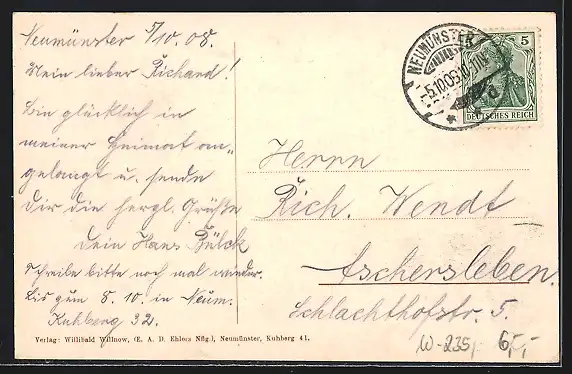 Neumünster 5/10.08.
Mein lieber Richard!
Bin glücklich in
meiner Heimat an-
gelangt u. sende
Dir die herzl. Grüße
Dein Hans Bülck
Schreibe bitte noch mal wieder.
Bis zum 8. 10. in Neum.
Kuhberg 32.
Verlag: Willibald Willnow, (E. A. D. Ehlers Nflg.), Neumünster, Kuhberg 41.
NEUMÜNSTER
5
DEUTSCHES REICH
Herrn
Rich. Wendt
Aschersleben.
Schlachthofstr. 5.
W-235,- 6,-